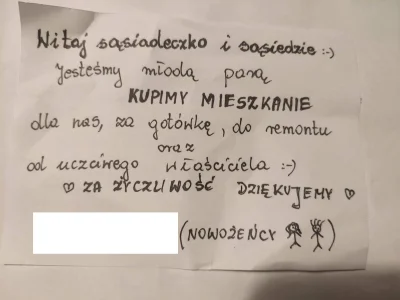 Witaj sąsiadeczko i sąsiedzie :-)
Jesteśmy młodą parą
KUPIMY MIESZKANIE
dla nas, za gotówkę, do remontu
oraz
od uczciwego właściciela :-)
♡ ZA ŻYCZLIWOŚĆ DZIĘKUJEMY ♡
(NOWOŻEŃCY )